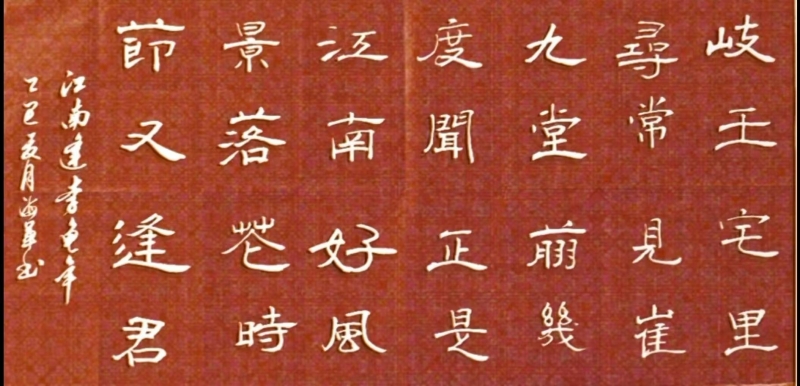 岐王宅里
尋常見崔
九堂前幾
度聞正是
江南好風
景落花時
節又逢君
江南逢李龟年
乙巳夏月海華书